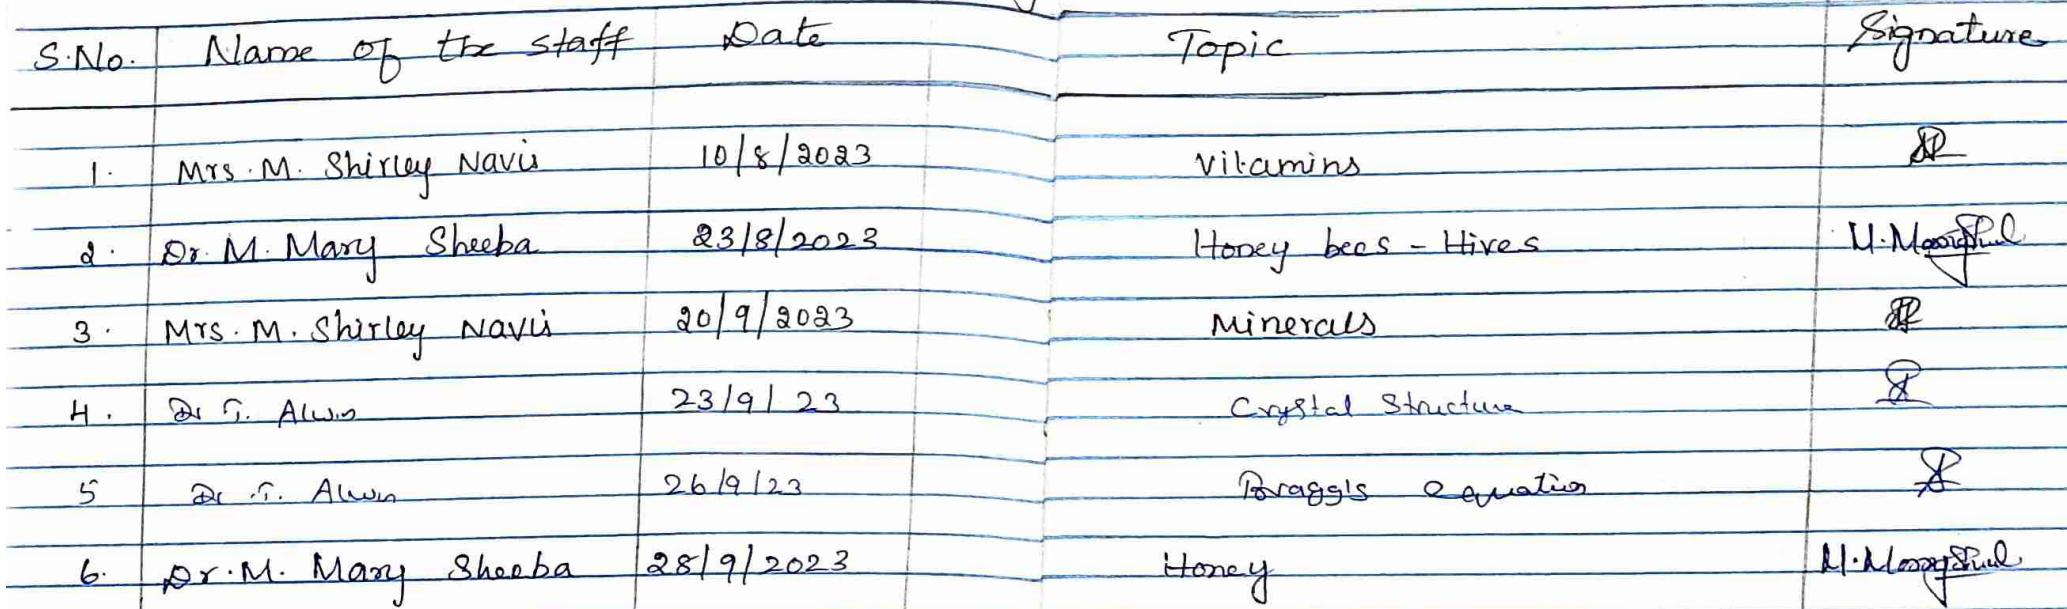 S.No. Name of the staff Date Topic Signature
1. Mrs. M. Shirley Navis 10/8/2023 Vitamins
2. Dr. M. Mary Sheeba 23/8/2023 Honey bees - Hives
3. Mrs. M. Shirley Navis 20/9/2023 Minerals
4. Dr T. Alwin 23/9/23 Crystal Structure
5 Dr T. Alwin 26/9/23 Bragg's equation
6. Dr. M. Mary Sheeba 28/9/2023 Honey